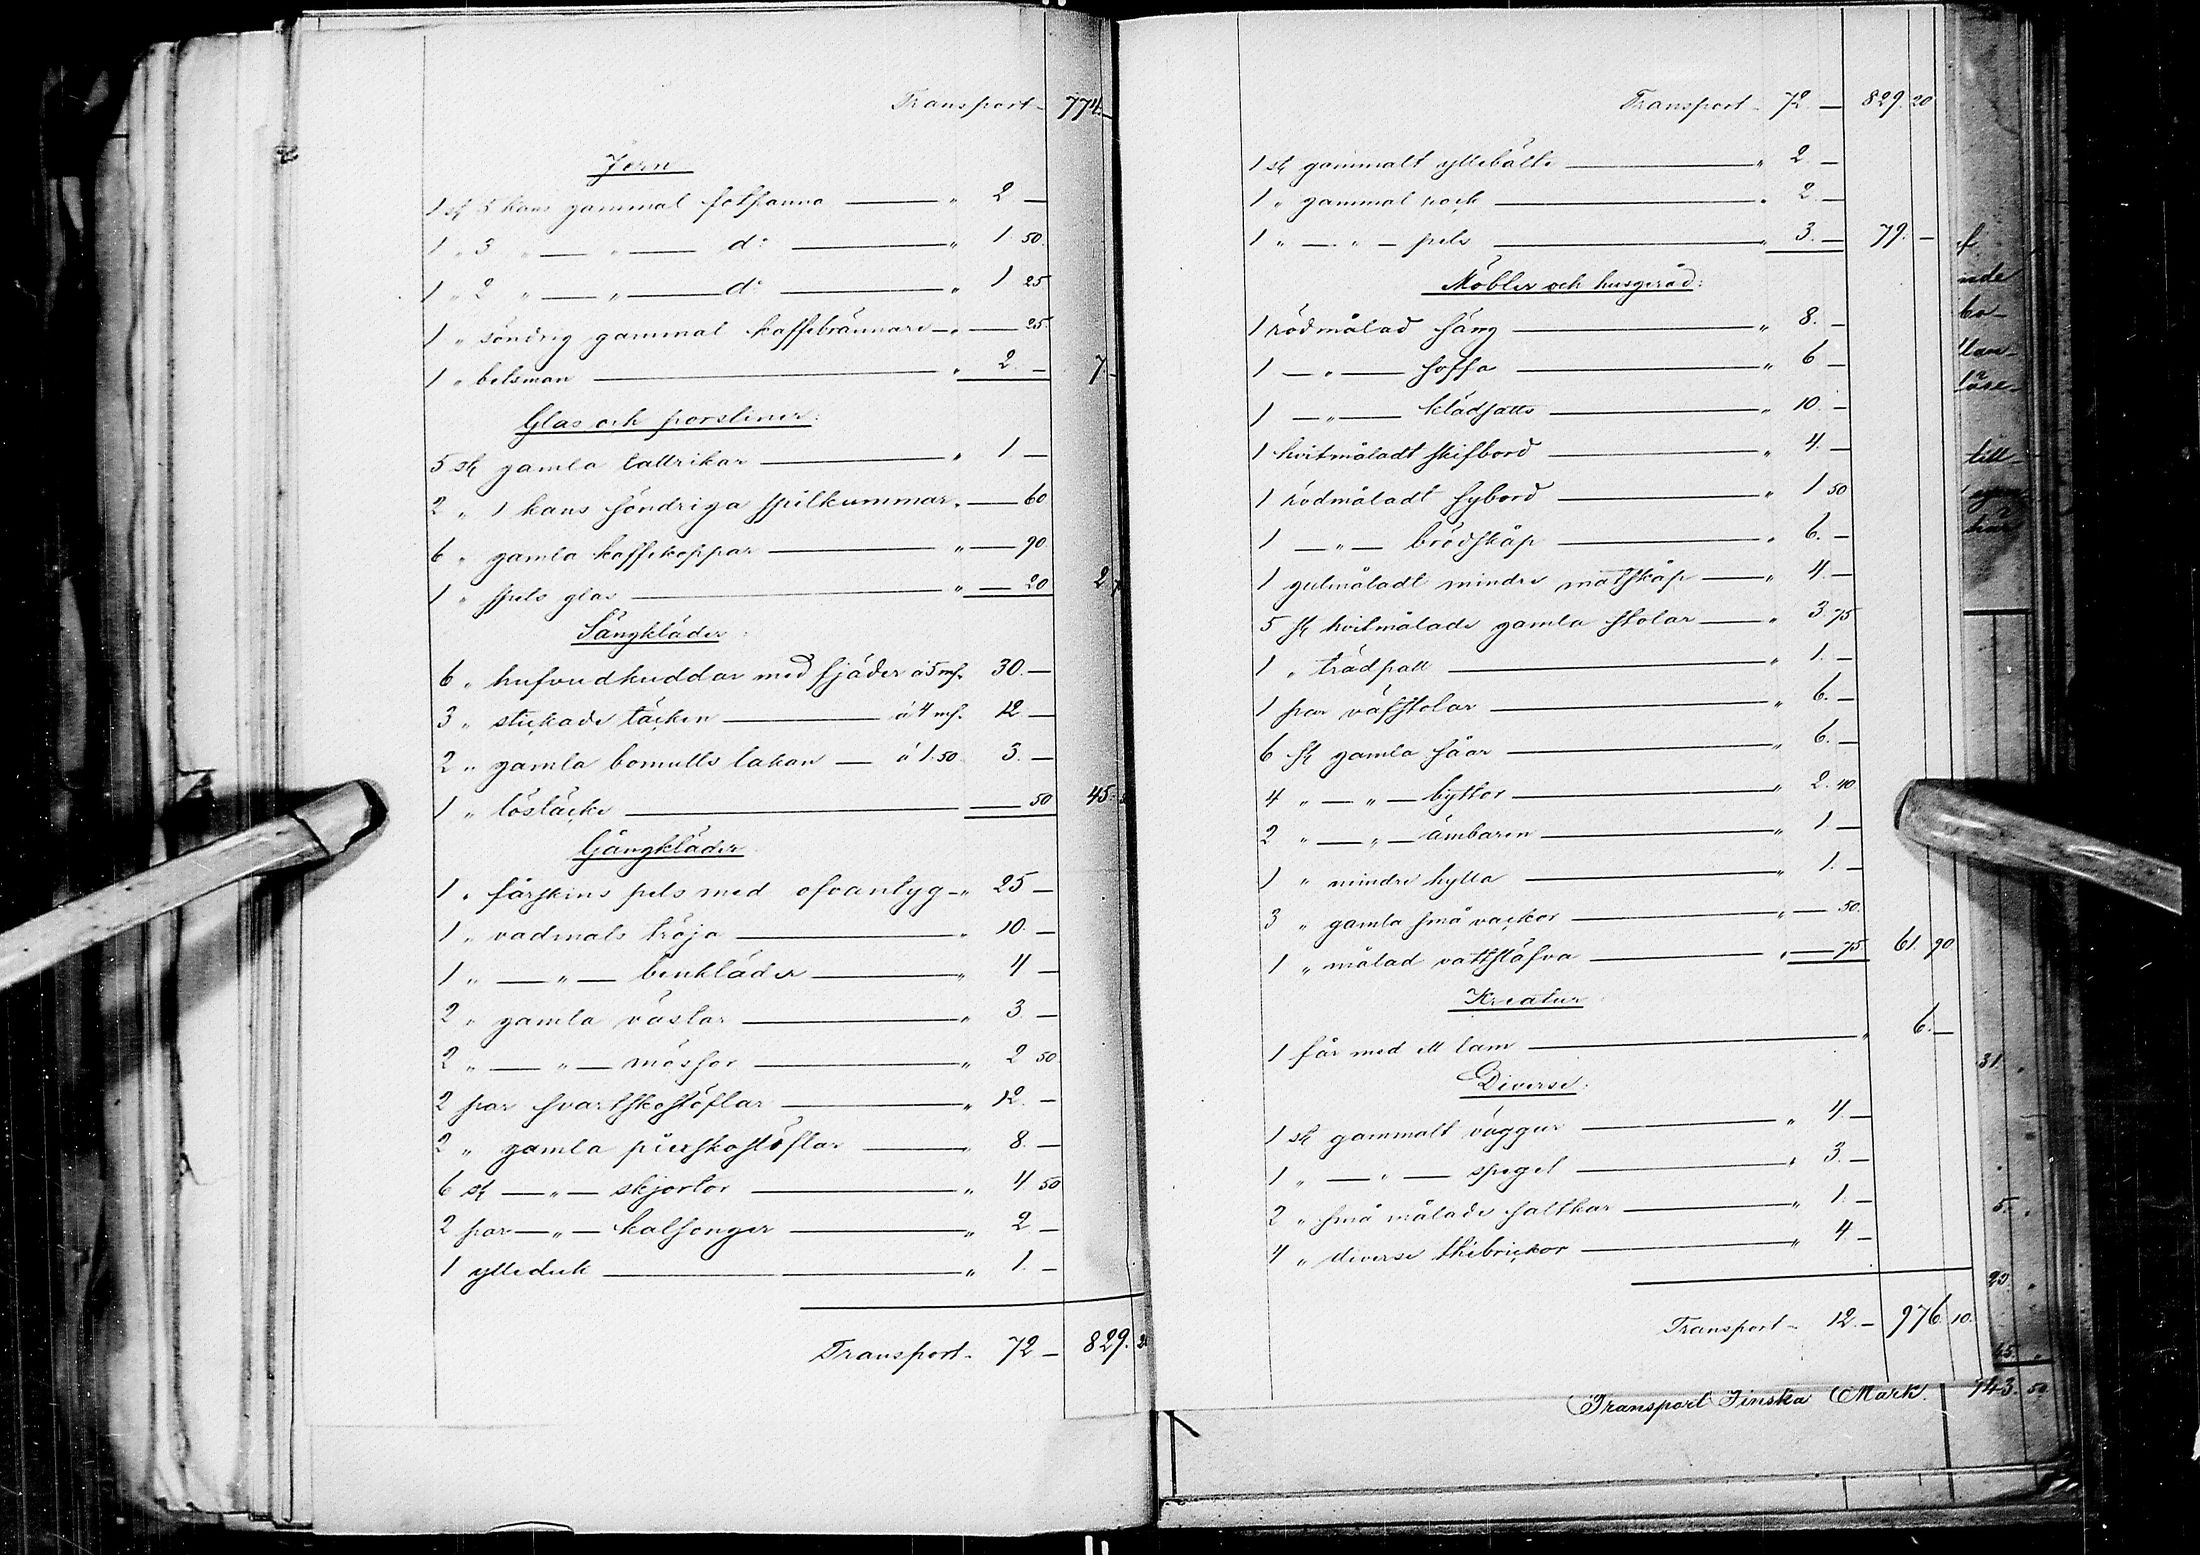 Transport - 774. -
Jern
1 st 5 kans gammal fotpanna — " 2 —
1 " 3 " — " — d:o — " 1. 50.
1 " 2 " — " — d:o — " 1 25
1 " söndrig gammal kaffebrännare — " — 25.
1 " besman — " 2. — 7. -
Glas och porsliner:
5 st gamla tallrikar — " 1 —
2 " 1 kans söndriga spilkummar " — 60
6 " gamla kaffekoppar — " — 90
1 " spets glas — " — 20 2. 7
Sängkläder:
6 " hufvudkuddar med fjäder á 5 mf. 30. —
3 " stickade täcken — á 4 mf. 12 —
2 " gamla bomulls lakan — á 1.50 3. —
1 " löstäcke — 50 45.
Gångkläder
1 " fårskins pels med ofvantyg — " 25 —
1 " vadmals tröja — " 10. —
1 " — " — benkläder — " 4 —
2 " gamla västar — " 3. —
2 " — " — mössor — " 2 50
2 par svartskostöflar — " 12. —
2 " gamla piexskostöflar — " 8. —
6 st — " — skjortor — " 4 50
2 par — " — kalsonger — " 2 —
1 ylleduk — " 1. —
Transport - 72 — 829. 20
Transport - 72. — 829. 20
1 st gammalt yllebälte — " 2. —
1 " gammal rock — " 2. —
1 " — " — pels — " 3. — 79. —
Möbler och husgeråd:
1 rödmålad säng — " 8. —
1 — " — soffa — " 6 —
1 — " — klädsatts — " 10. —
1 hvitmåladt skifbord — " 4. —
1 rödmåladt sybord — " 1 50
1 — " — brödskåp — " 6. —
1 gulmåladt mindre matskåp — " 4. —
5 st hvitmålade gamla stolar — " 3 75
1 " trädpall — " 1. —
1 par väfstolar — " 6. —
6 st gamla såar — " 6. —
4 " — " — byttor — " 2. 40
2 " — " — ämbaren — " 1. —
1 " mindre hylla — " 1. —
3 " gamla små vackor — " — 50.
1 " målad vattstäfva — " — 75 61. 90
Kreatur
1 får med ett lam — " 6. —
Diverse:
1 st gammalt väggur — " 4 —
1 " — " — spegel — " 3. —
2 " små målade saltkar — " 1. —
4 " diverse thebrickor — " 4 —
Transport - 12. — 976. 10.
Transport Finska Mark. 943. 50
nde
bo-
till-
31.
5.